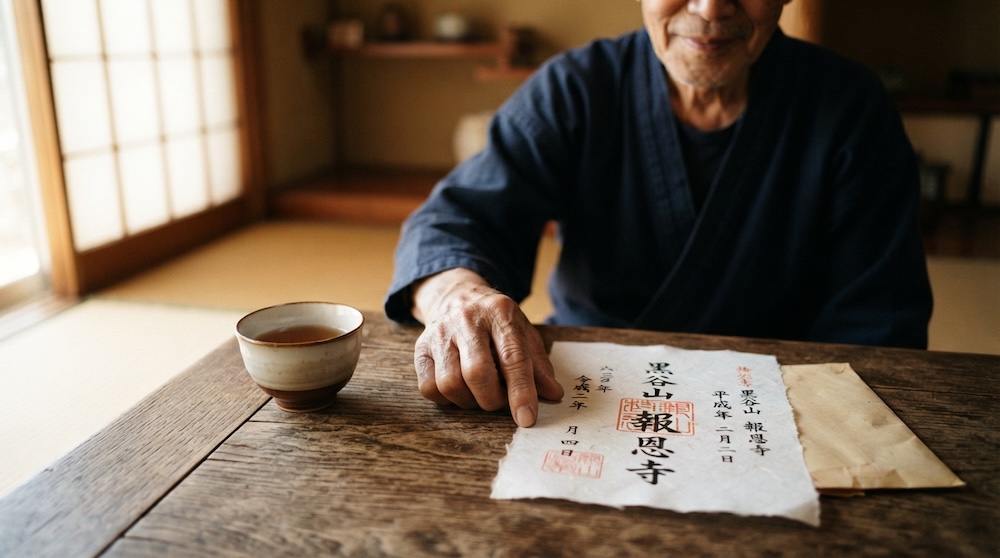 黒谷山 報恩寺
平成年 二月二日
黒谷山報恩寺
二年 月四日